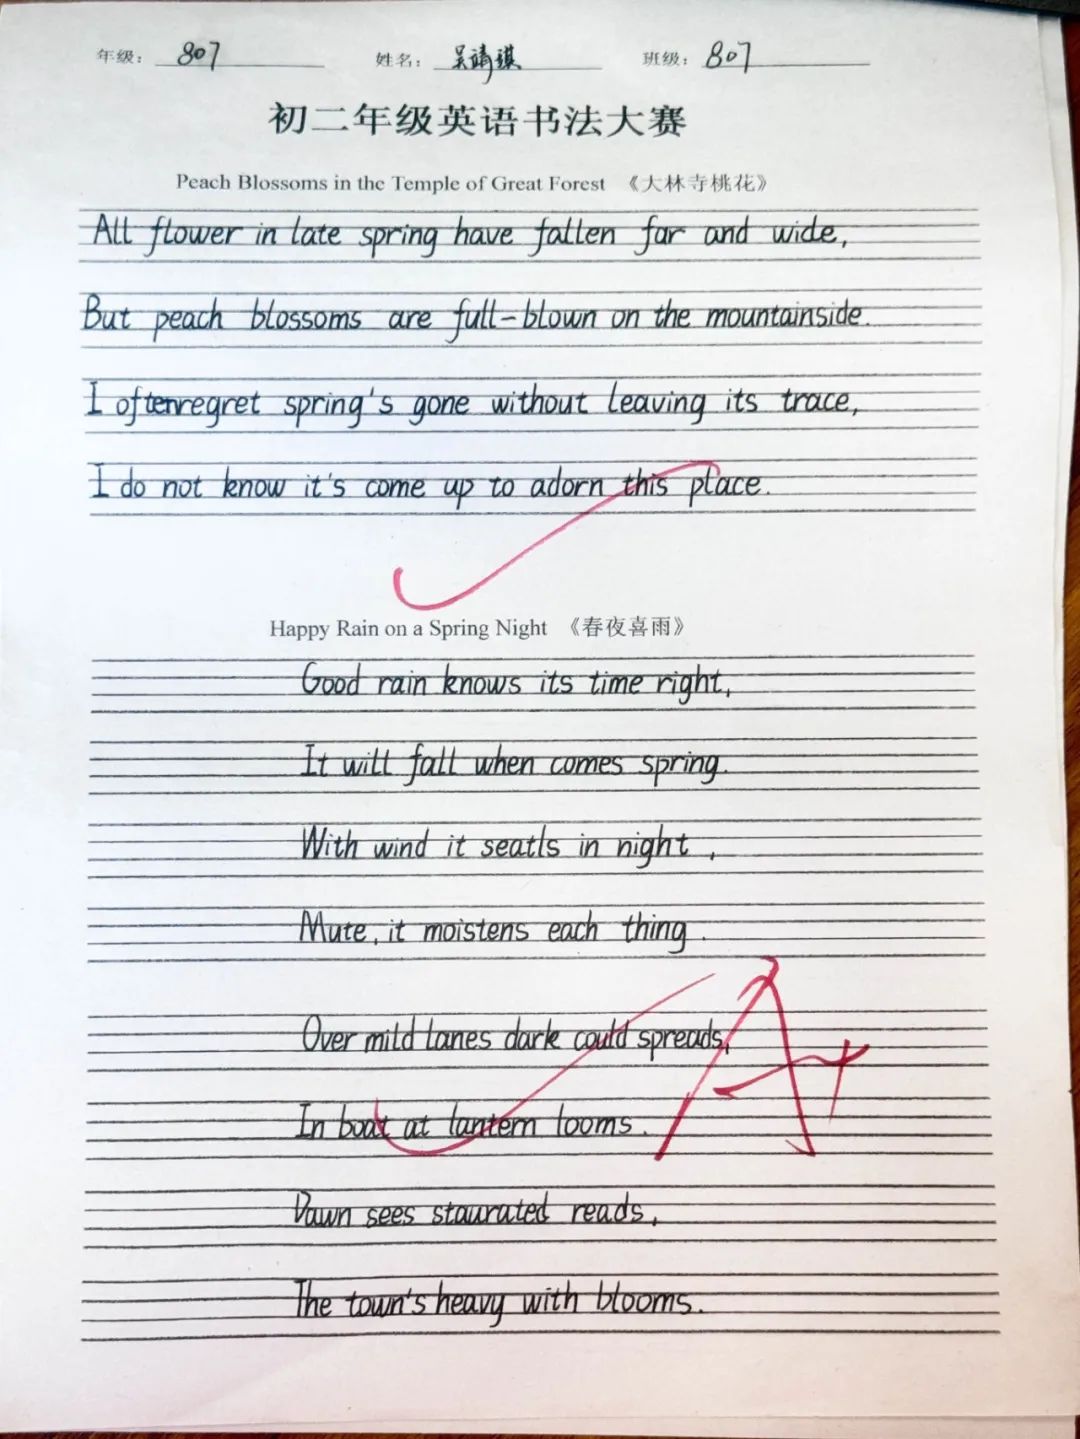 年级: 807 姓名: 吴靖琪 班级: 807
初二年级英语书法大赛
Peach Blossoms in the Temple of Great Forest 《大林寺桃花》
All flower in late spring have fallen far and wide,
But peach blossoms are full-blown on the mountainside.
I often regret spring's gone without leaving its trace,
I do not know it's come up to adorn this place.
Happy Rain on a Spring Night 《春夜喜雨》
Good rain knows its time right,
It will fall when comes spring.
With wind it seatls in night,
Mute, it moistens each thing.
Over mild lanes dark could spreads,
In boat at lantern looms.
Dawn sees staurated reads,
The town's heavy with blooms.
A+